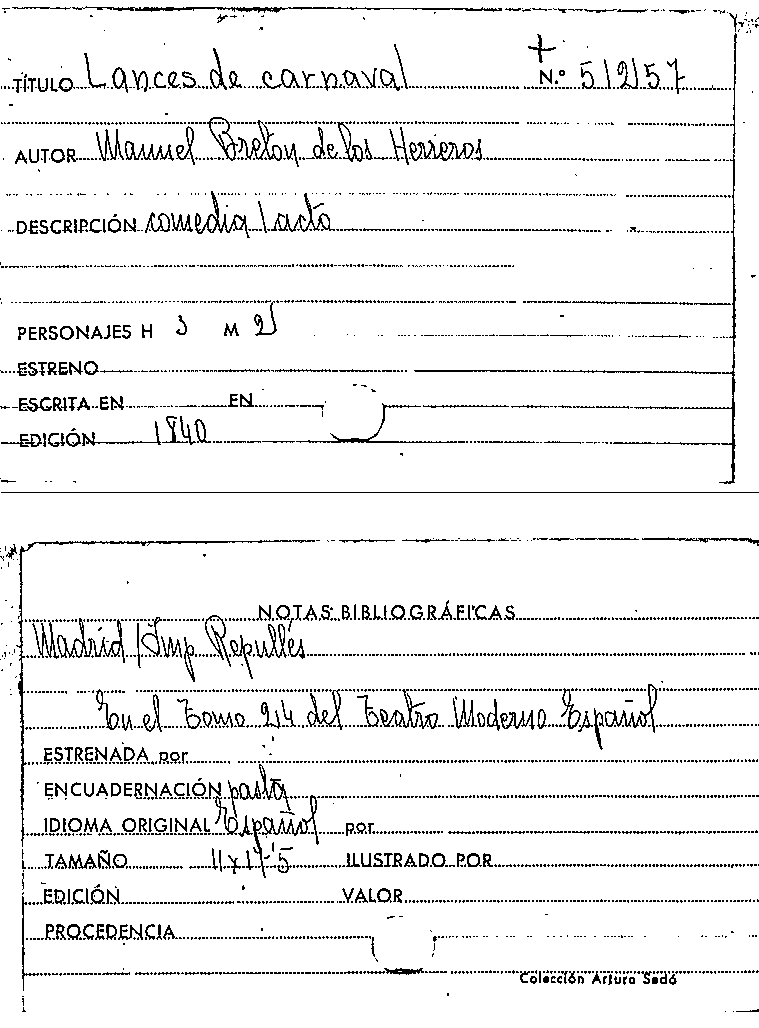 TÍTULO Lances de carnaval N.º 51257
AUTOR Manuel Breton de los Herreros
DESCRIPCIÓN comedia 1 acto
PERSONAJES H 3 M 2
ESTRENO
ESCRITA EN EN
EDICIÓN 1840
NOTAS BIBLIOGRÁFICAS
Madrid / Imp Repullés
En el Tomo 214 del Teatro Moderno Español
ESTRENADA por
ENCUADERNACIÓN pasta
IDIOMA ORIGINAL Español por
TAMAÑO 11 x 17'5 ILUSTRADO POR
EDICIÓN VALOR
PROCEDENCIA
Colección Arturo Sedó